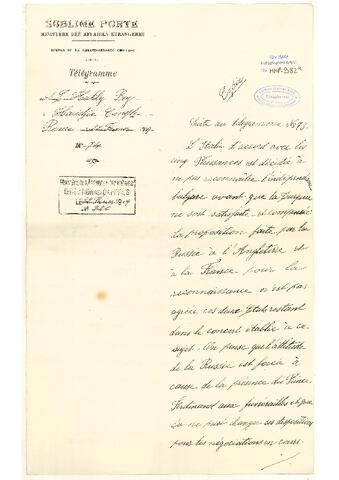 SUBLIME PORTE
MINISTÈRE DES AFFAIRES ÉTRANGÈRES
BUREAU DE LA CORRESPONDANCE
Télégramme
A. S. Bey
Rome
N° 74
Copie
HHP.982
Suite au télégramme N° 73.
L'Italie d'accord avec les
cinq Puissances est décidée à
ne pas reconnaître l'indépendance
bulgare avant que la Turquie
ne soit satisfaite et compensée
La proposition faite par la
Russie à l'Angleterre et
à la France pour la
reconnaissance n'est pas
agréée, ces deux Etats restant
dans le concert établi à ce
sujet. On pense que l'attitude
de la Russie est forcée à
cause de la présence du Prince
Ferdinand aux funérailles et que
ça ne puisse changer ses dispositions
pour les négociations en cours.